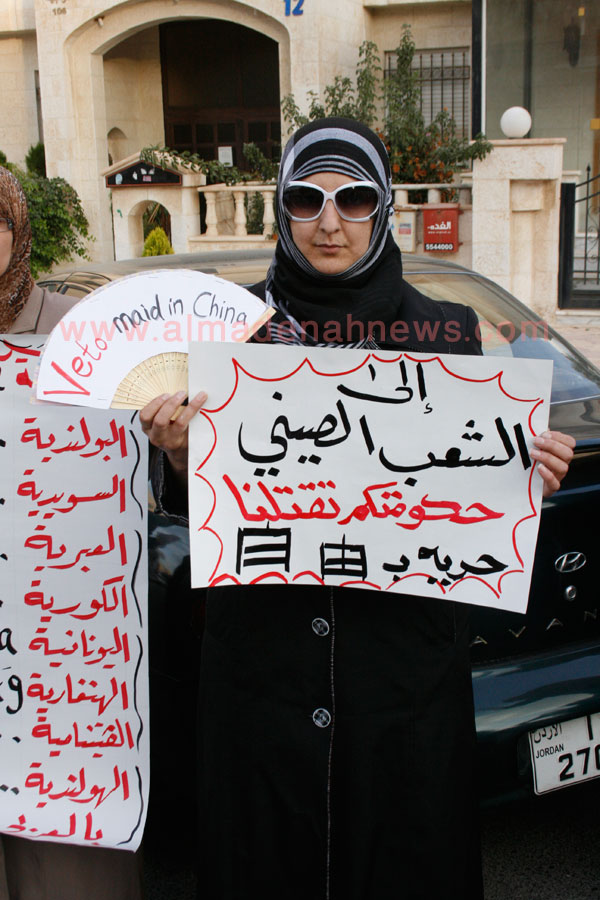 12
106
Veto maid in China
www.almadenahnews.com
5544060
إلى
الشعب الصيني
حكومتكم تقتلنا
حريه ب
البولندية
السويدية
العبرية
الكورية
اليونانية
الهنغارية
الفيتنامية
الهولندية
بالعربي
AVAN
الأردن
JORDAN
270